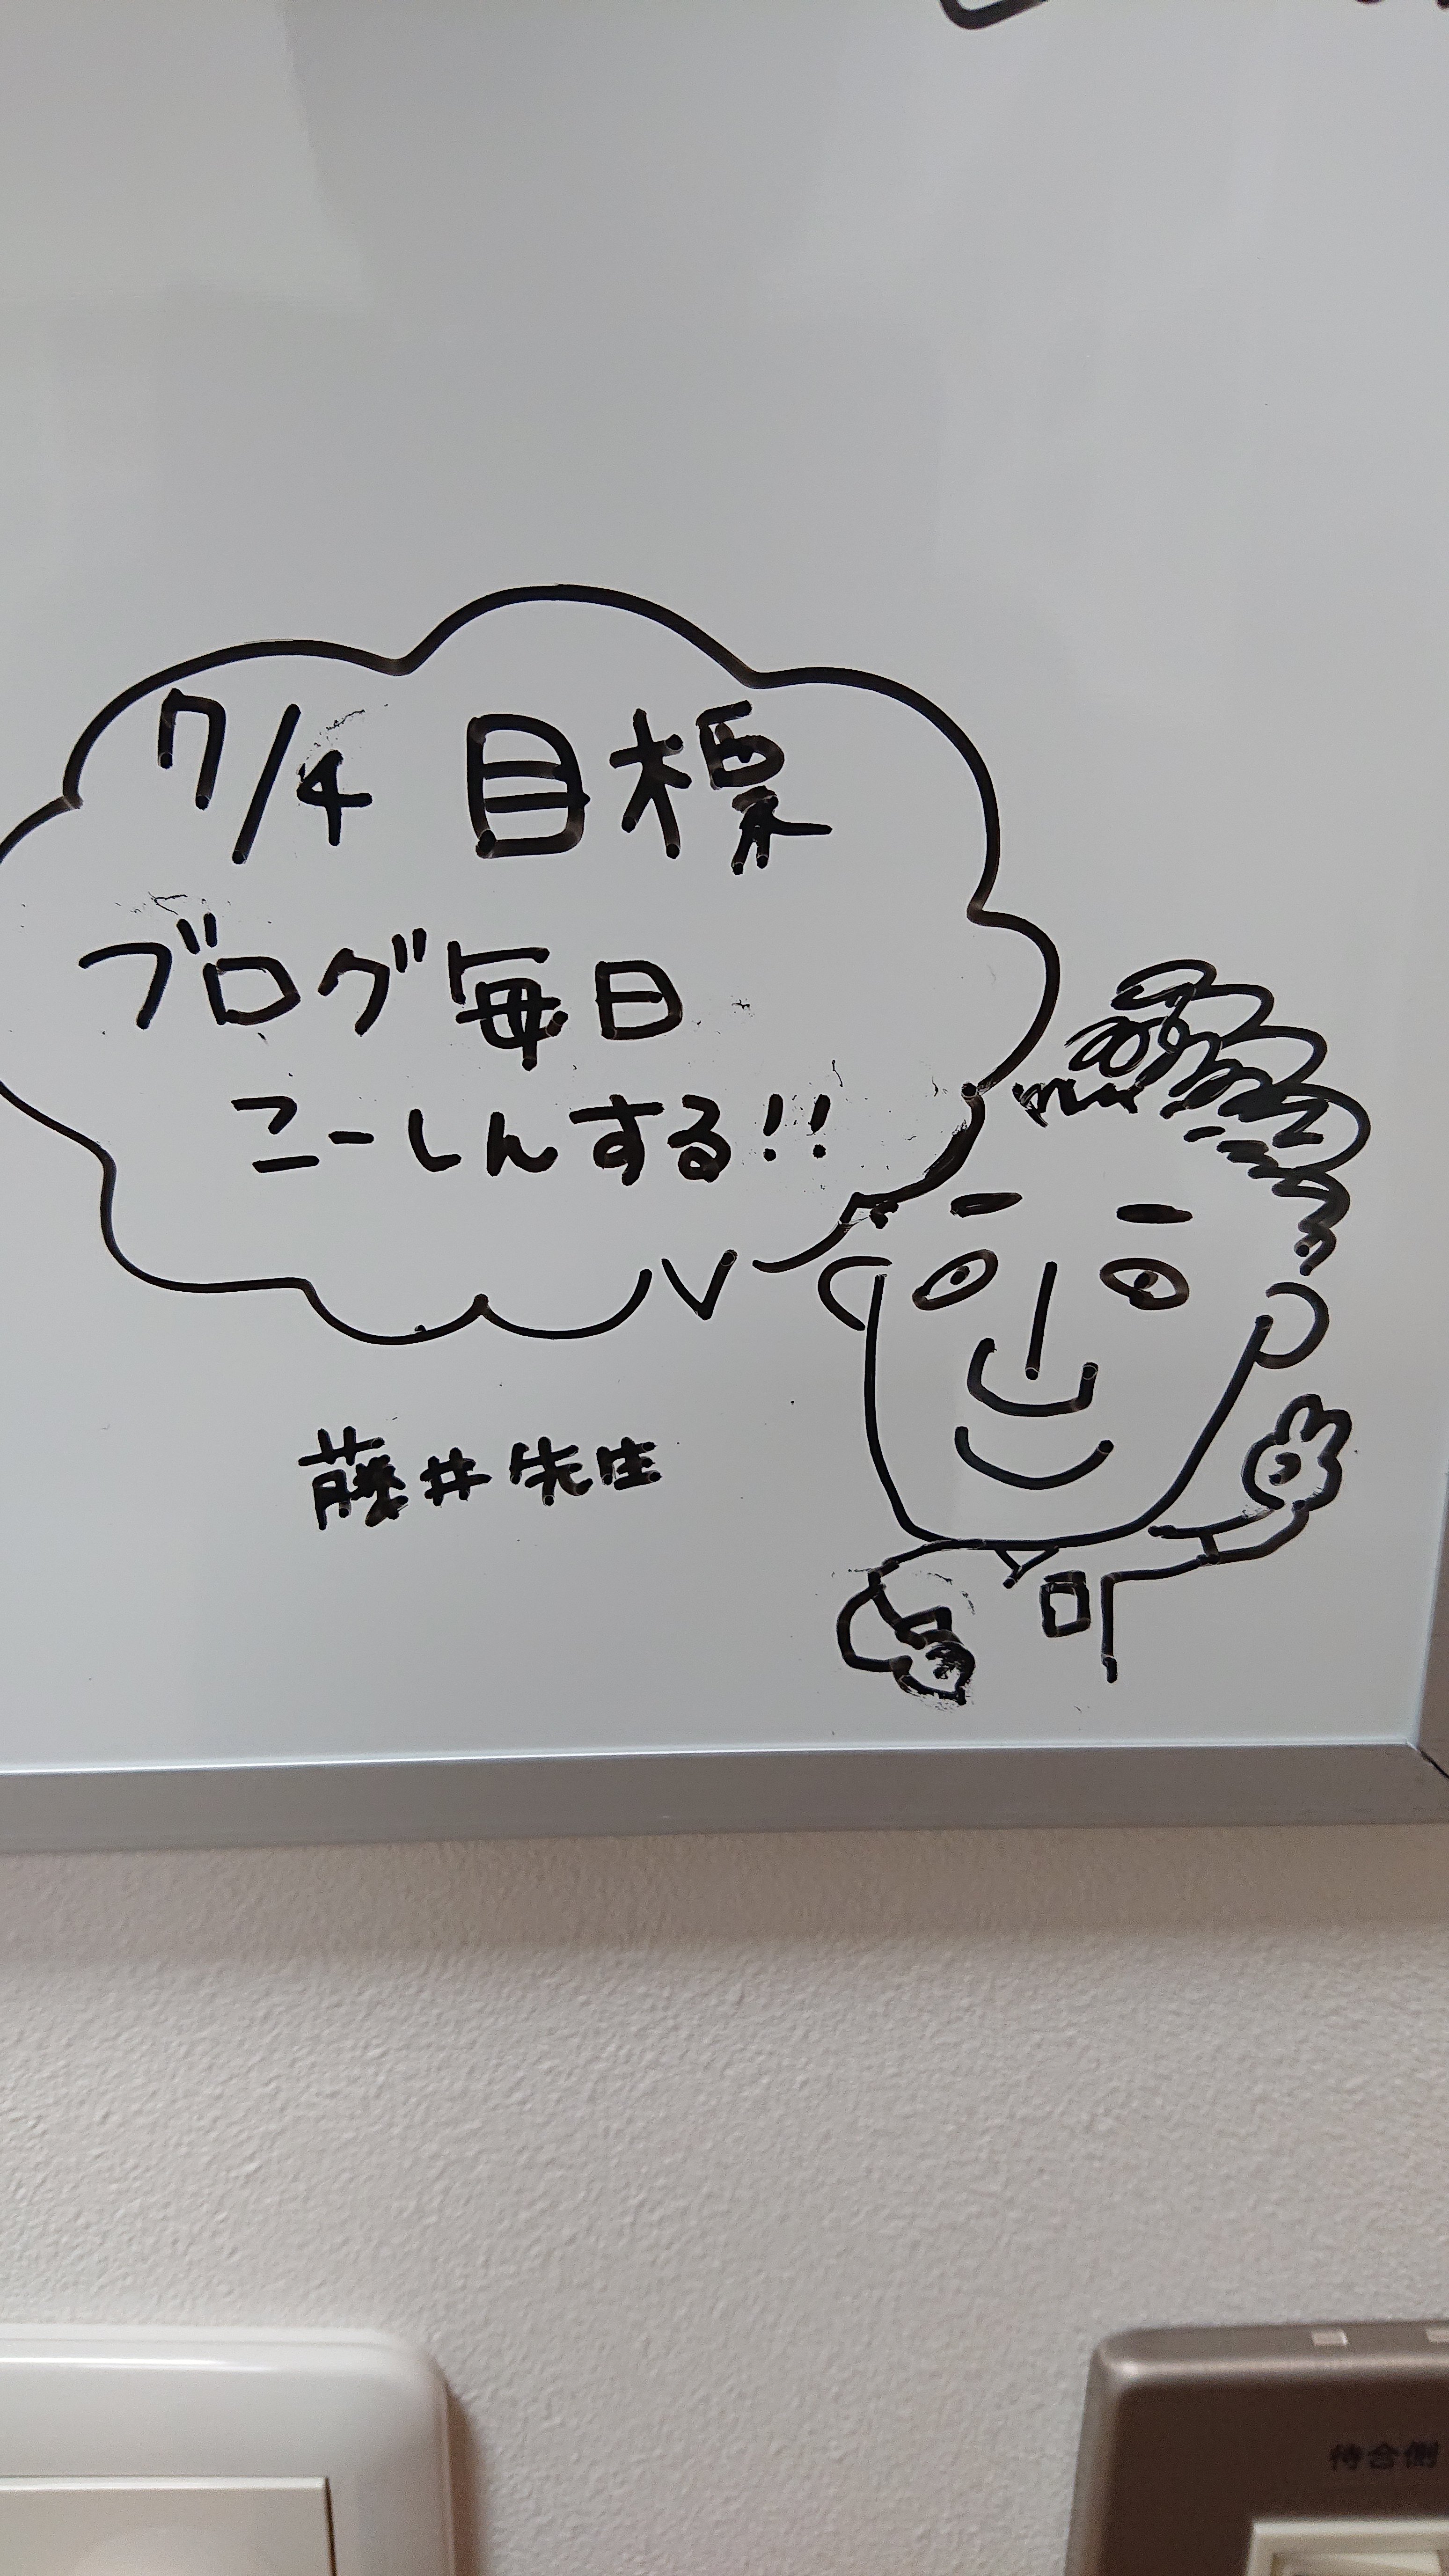 7/4 目標
ブログ毎日
こーしんする!!
藤井先生
待合側